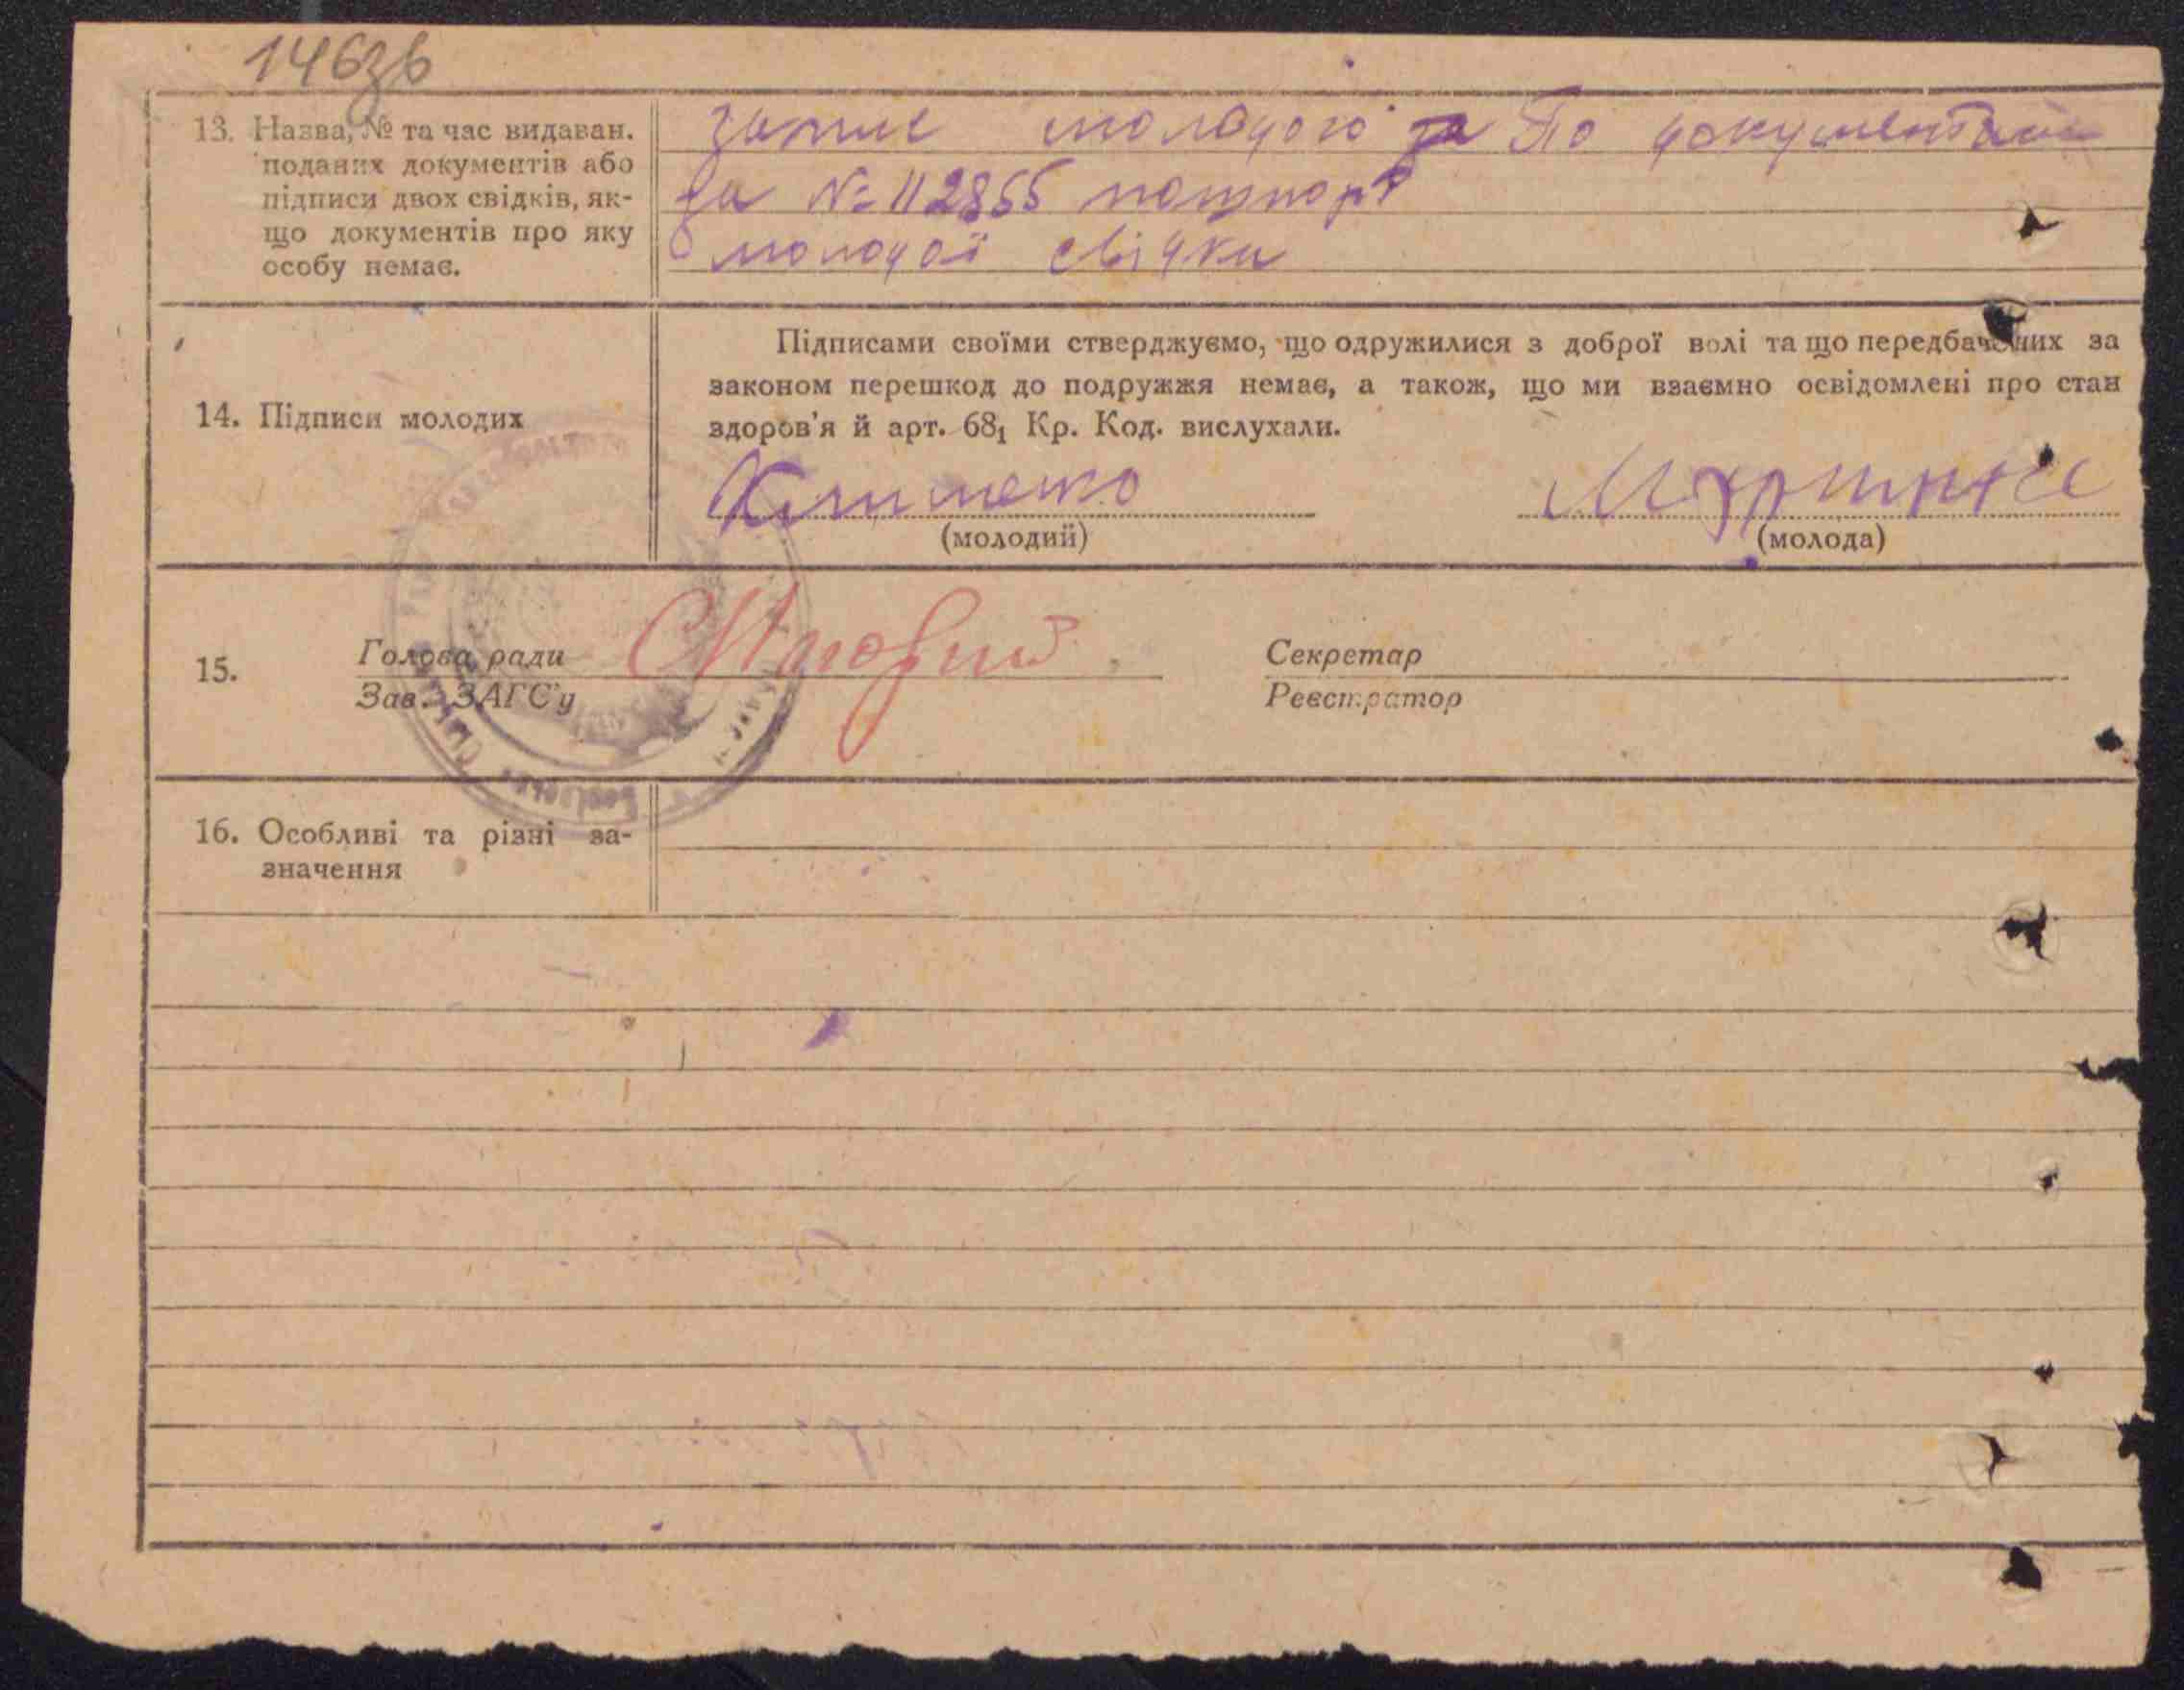 146зв
13. Назва, № та час видаван.
поданих документів або
підписи двох свідків, як-
що документів про яку
особу немає.
запис молодого за По документам
за № 112855 пашпорт
молодої свідки
14. Підписи молодих
Підписами своїми стверджуємо, що одружилися з доброї волі та що передбачених за
законом перешкод до подружжя немає, а також, що ми взаємно освідомлені про стан
здоров'я й арт. 68₁ Кр. Код. вислухали.
(молодий)
(молода)
15.
Голова ради
Зав. ЗАГС'у
Секретар
Реєстратор
16. Особливі та різні за-
значення